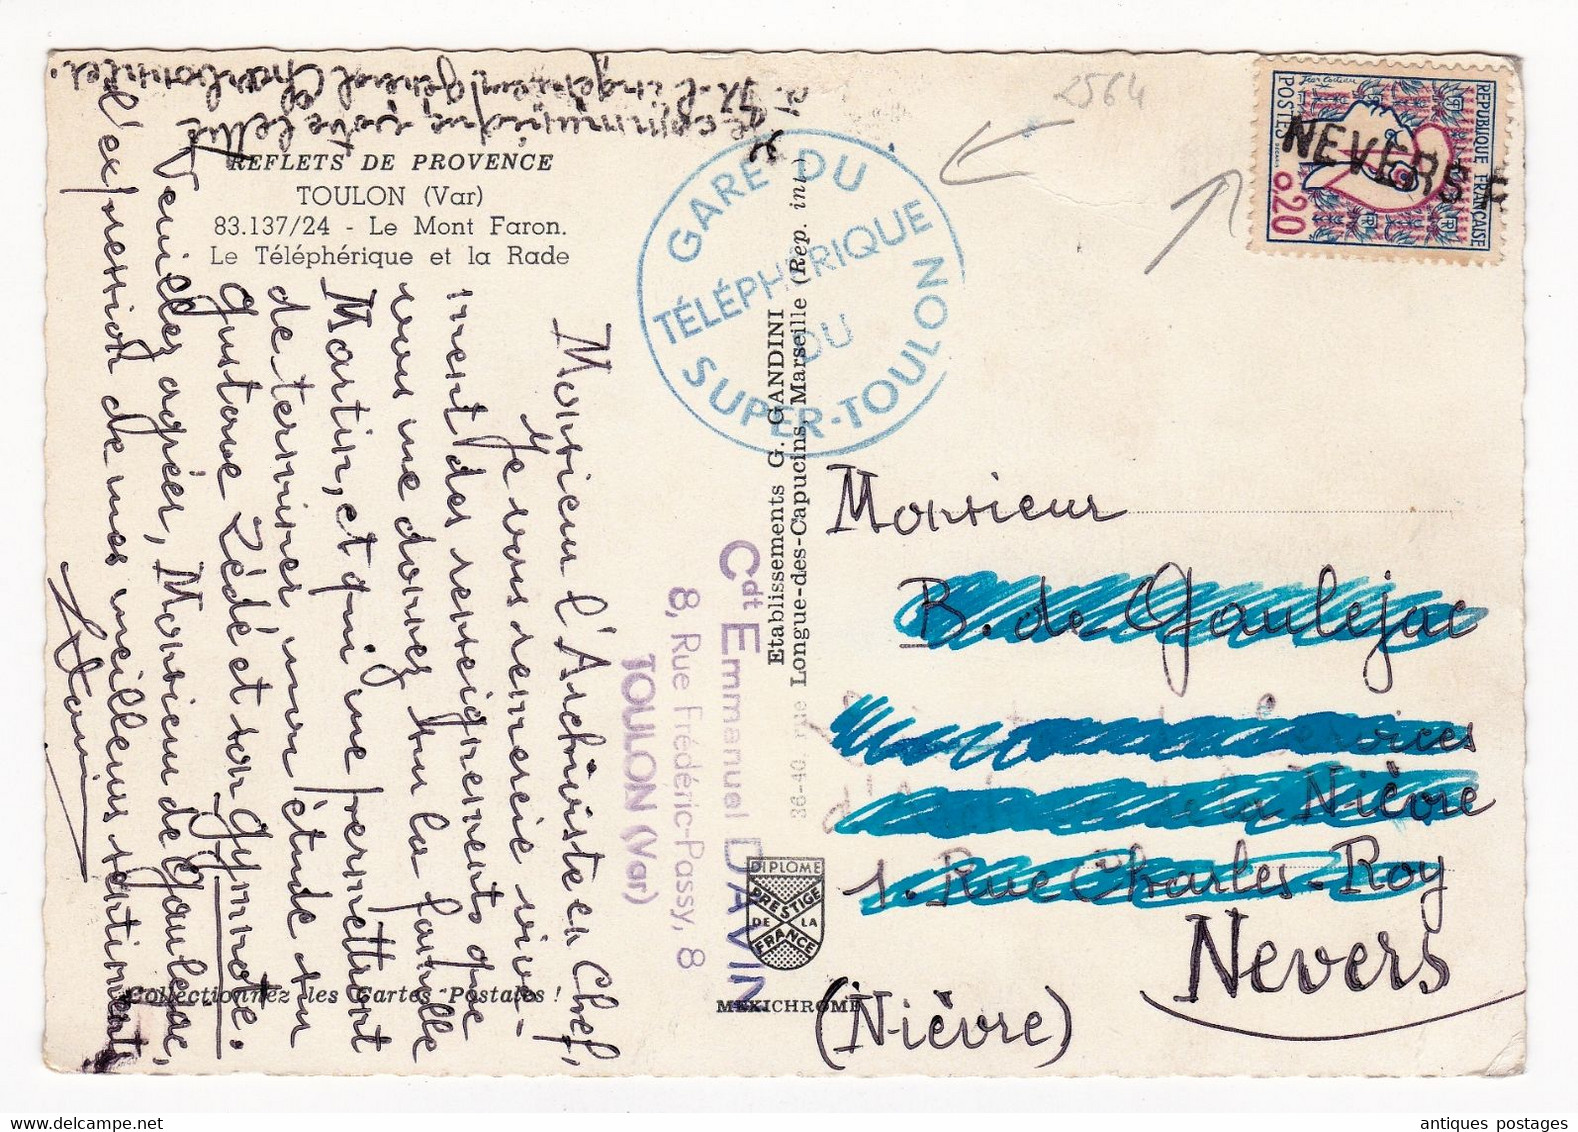 REFLETS DE PROVENCE
TOULON (Var)
83.137/24 - Le Mont Faron.
Le Téléphérique et la Rade
Monsieur l'Archiviste en Chef,
Je vous remercie vive-
ment des renseignements que
vous me donnez sur la famille
Martin, et qui me permettront
de terminer, mon étude sur
Gustave Zédé et son Gymnote.
Veuillez agréer, Monsieur de Gaulejac,
l'expression de mes meilleurs sentiments
Davin
Je communique votre lettre
à M. l'ingénieur général Charbonnier.
Collectionnez les Cartes Postales !
GARE DU
TÉLÉPHÉRIQUE
DU
SUPER-TOULON
Etablissements G. GANDINI
36-40, rue Longue-des-Capucins, Marseille (Rep. int.)
Cdt Emmanuel DAVIN
8, Rue Frédéric-Passy, 8
TOULON (Var)
DIPLOME
PRESTIGE
DE LA
FRANCE
MEXICHROME
2564
REPUBLIQUE FRANÇAISE
POSTES
0,20
NEVERS
Monsieur
B. de Gaulejac
de la Nièvre
1. Rue Charles-Roy
Nevers
(Nièvre)
antiques postages